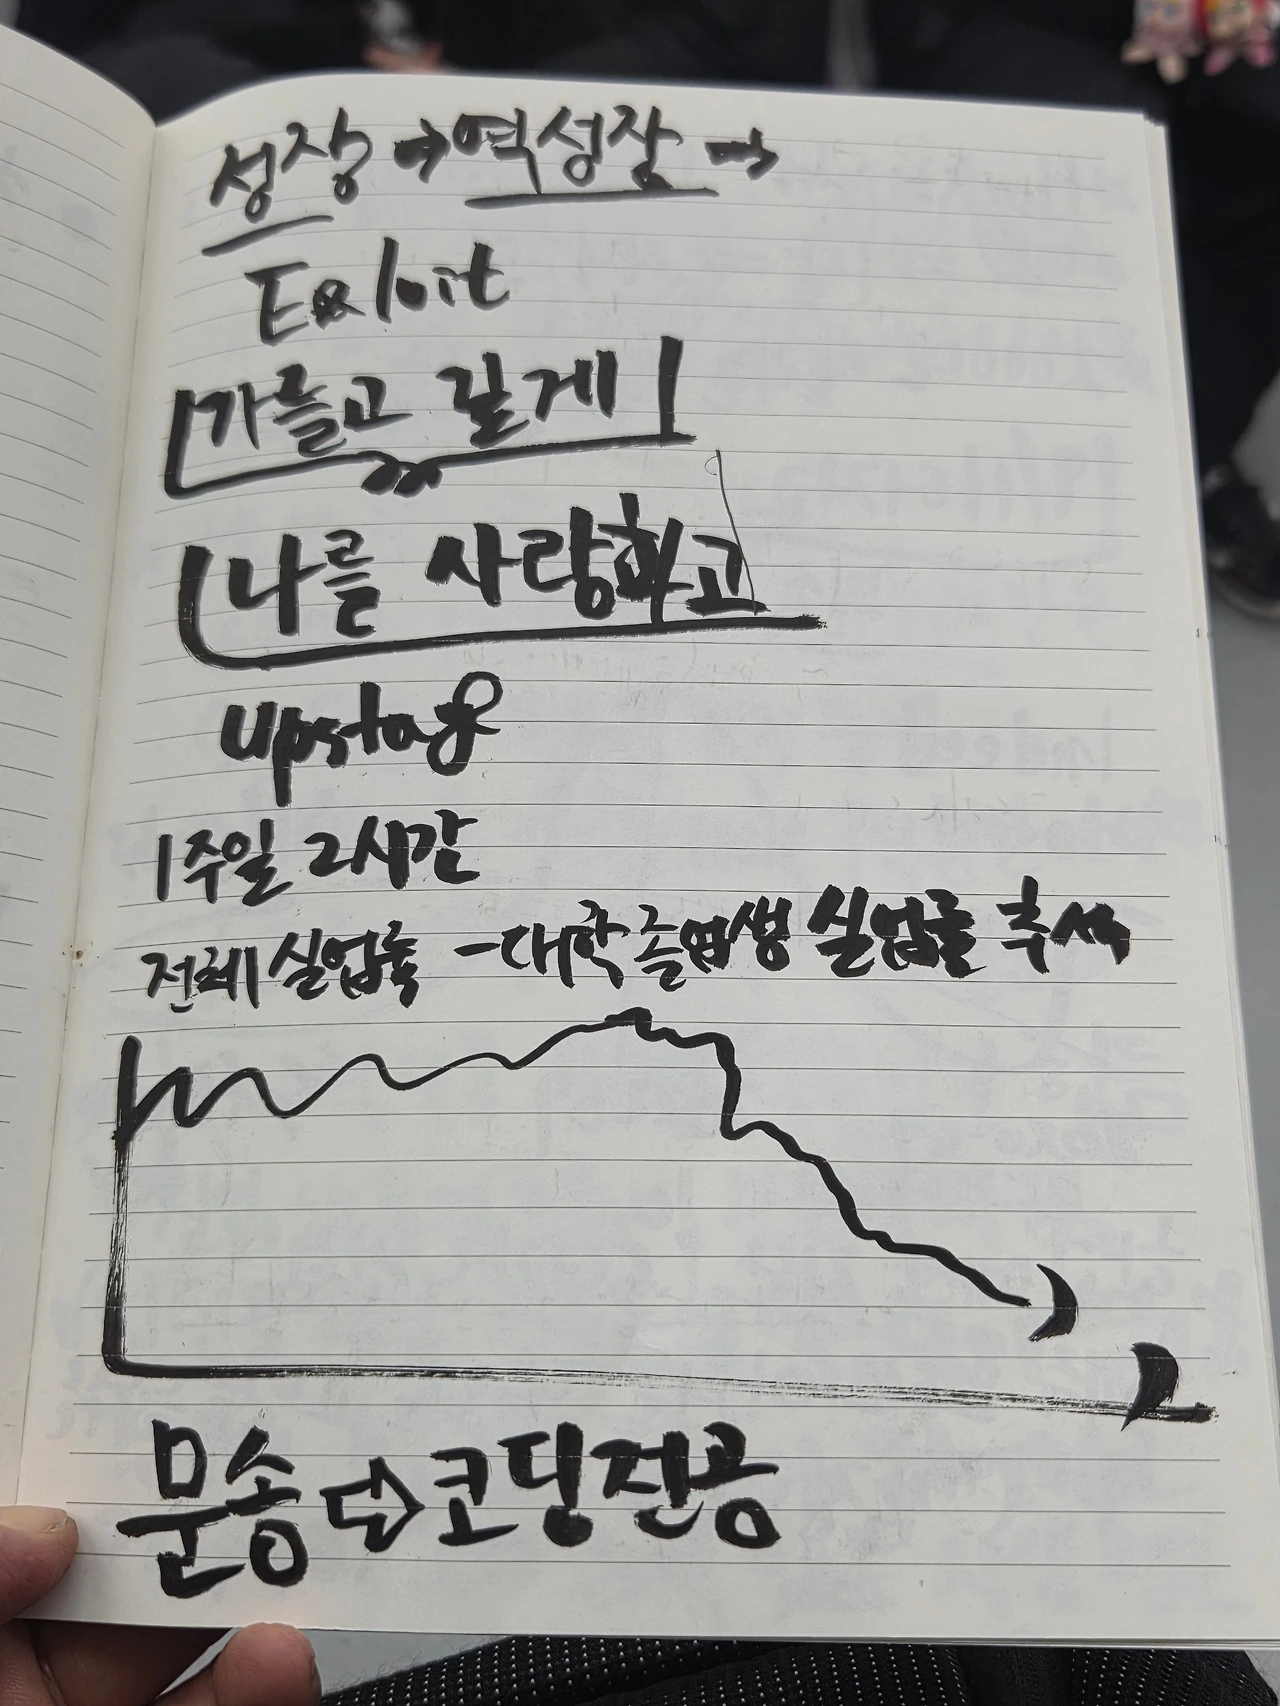 성장 → 역성장 →
Exploit
가늘고 길게
나를 사랑하고
upstage
1주일 2시간
전체 실업률 - 대학졸업생 실업률 추세
문송 ⇨ 코딩전공